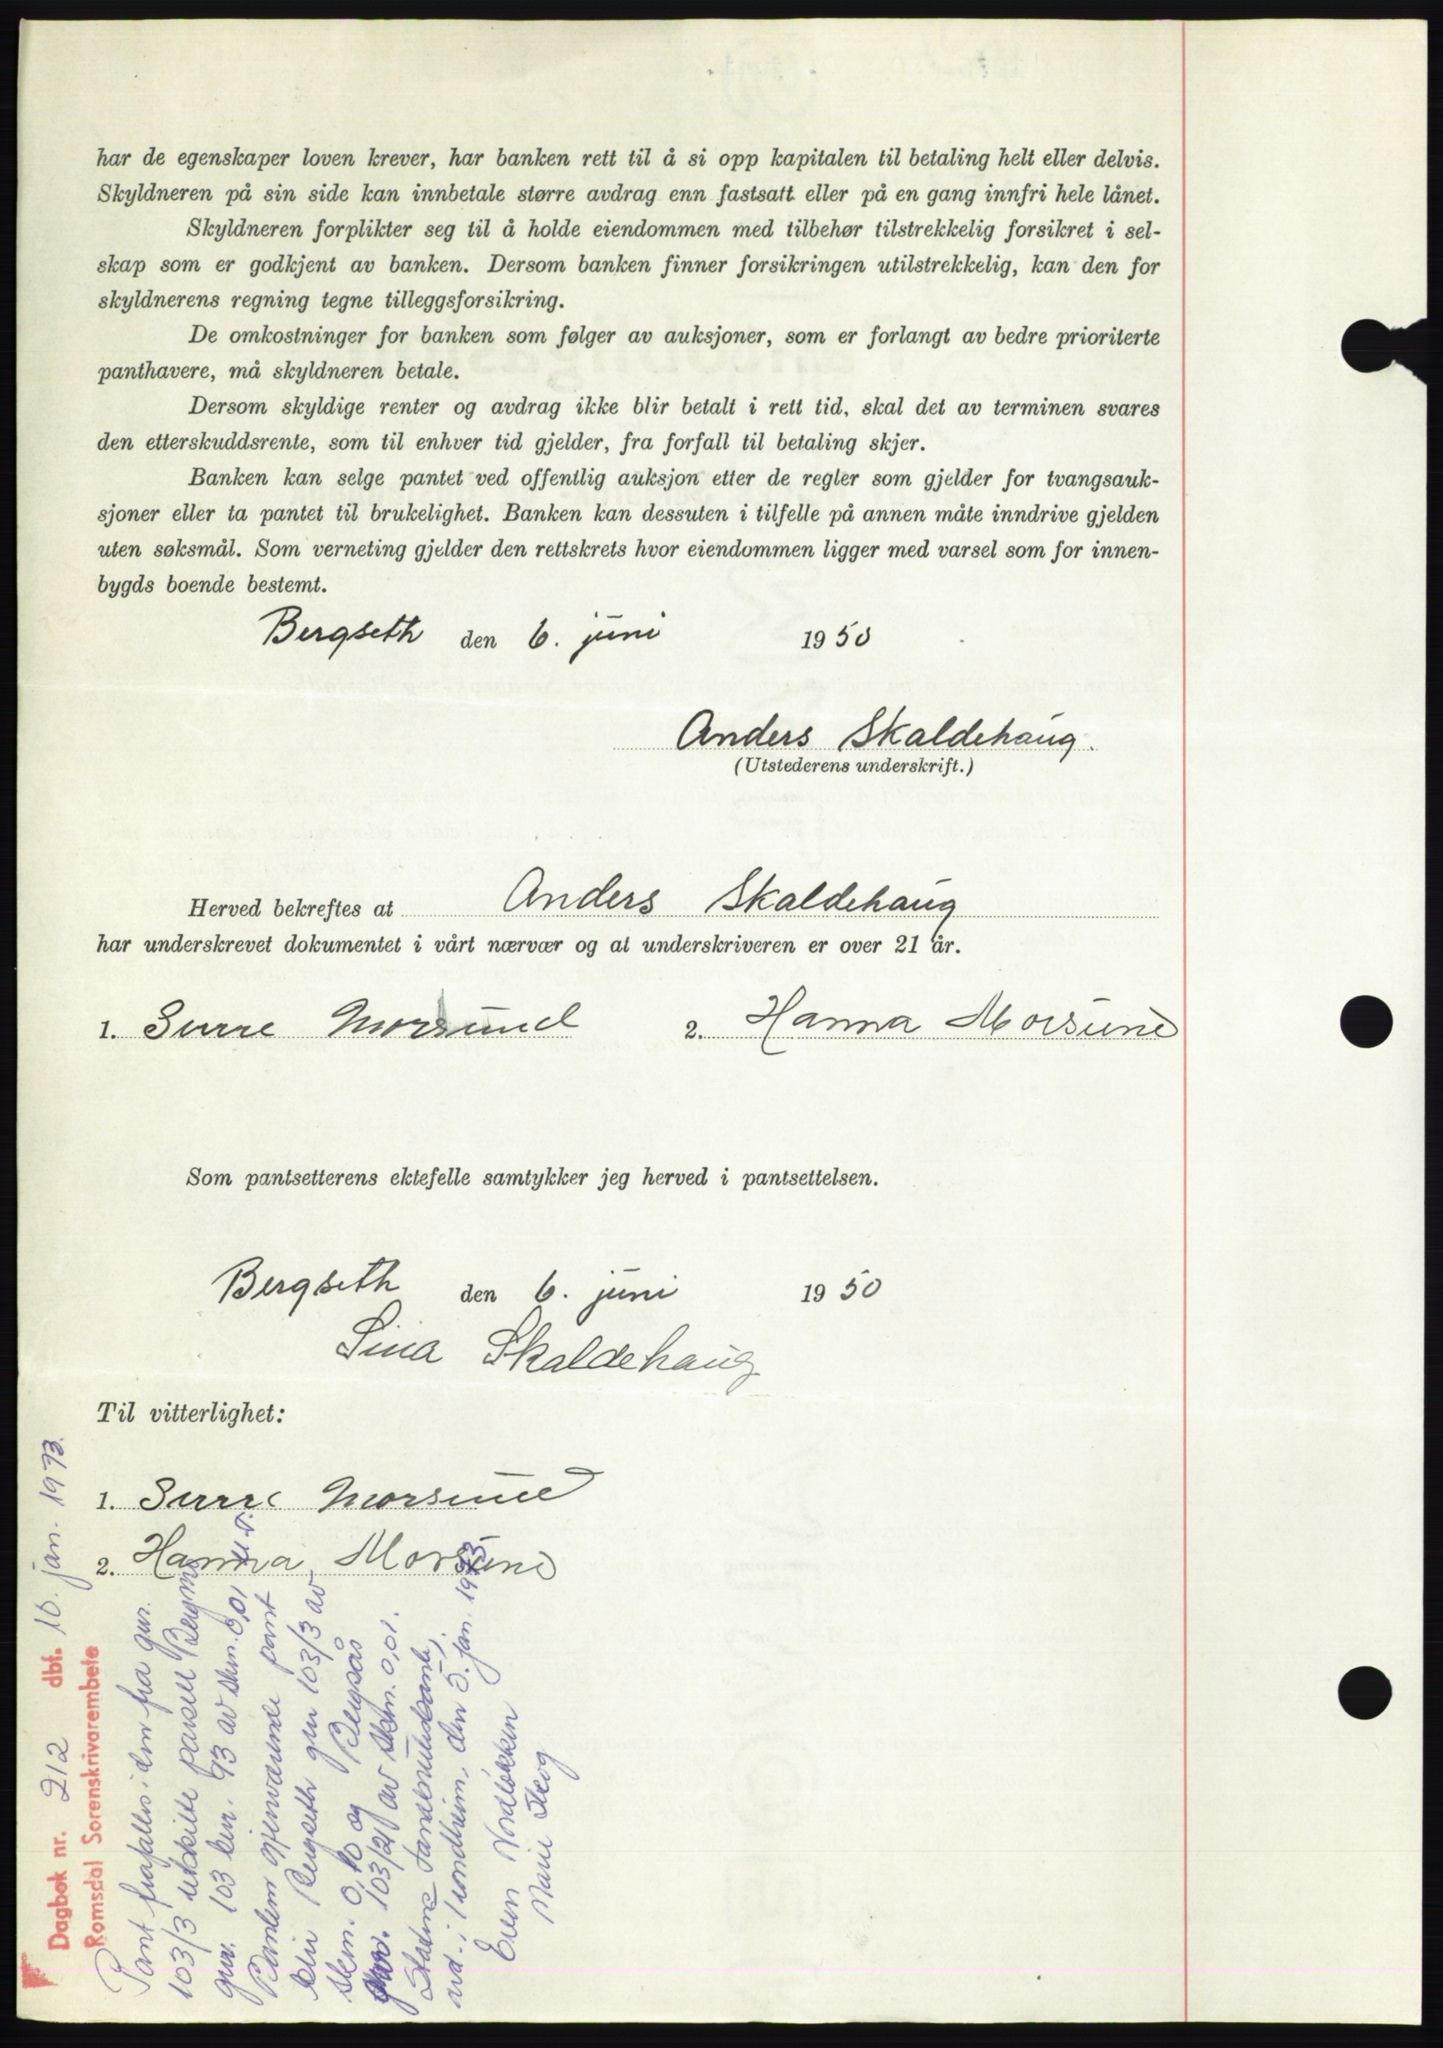 har de egenskaper loven krever, har banken rett til å si opp kapitalen til betaling helt eller delvis.
Skyldneren på sin side kan innbetale større avdrag enn fastsatt eller på en gang innfri hele lånet.
Skyldneren forplikter seg til å holde eiendommen med tilbehør tilstrekkelig forsikret i sel-
skap som er godkjent av banken. Dersom banken finner forsikringen utilstrekkelig, kan den for
skyldnerens regning tegne tilleggsforsikring.
De omkostninger for banken som følger av auksjoner, som er forlangt av bedre prioriterte
panthavere, må skyldneren betale.
Dersom skyldige renter og avdrag ikke blir betalt i rett tid, skal det av terminen svares
den etterskuddsrente, som til enhver tid gjelder, fra forfall til betaling skjer.
Banken kan selge pantet ved offentlig auksjon etter de regler som gjelder for tvangsauk-
sjoner eller ta pantet til brukelighet. Banken kan dessuten i tilfelle på annen måte inndrive gjelden
uten søksmål. Som verneting gjelder den rettskrets hvor eiendommen ligger med varsel som for innen-
bygds boende bestemt.
Bergseth den 6. juni 1950
Anders Skaldehaug.
(Utstederens underskrift.)
Herved bekreftes at Anders Skaldehaug
har underskrevet dokumentet i vårt nærvær og at underskriveren er over 21 år.
1. Sverre Morsund 2. Hanna Morsund
Som pantsetterens ektefelle samtykker jeg herved i pantsettelsen.
Bergseth den 6. juni 1950
Sina Skaldehaug
Til vitterlighet:
1. Sverre Morsund
2. Hanna Morsund
Dagbok nr. 212 dbf. 10. jan. 1973.
Romsdal Sorenskrivarembete
Pant frafalles i den fra gnr.
103/3 utskilte parsell Bergmo
gnr. 103 bnr. 93 av skm. 0,01
Panten gjenværende pant
blir Bergseth gnr 103/3 av
skm. 0,10 og Bergsås
gnr. 103/21 av skm. 0,01.
Statens Landbruksbank,
avd. i Trondheim, den 5. jan. 1973
Even Nordløkken
Marie Skog